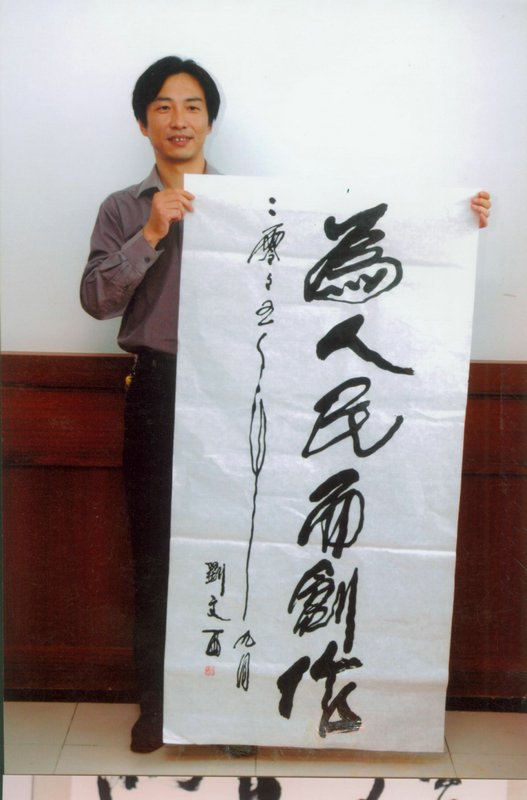 為人民而創作
二零々五年九月
劉文西